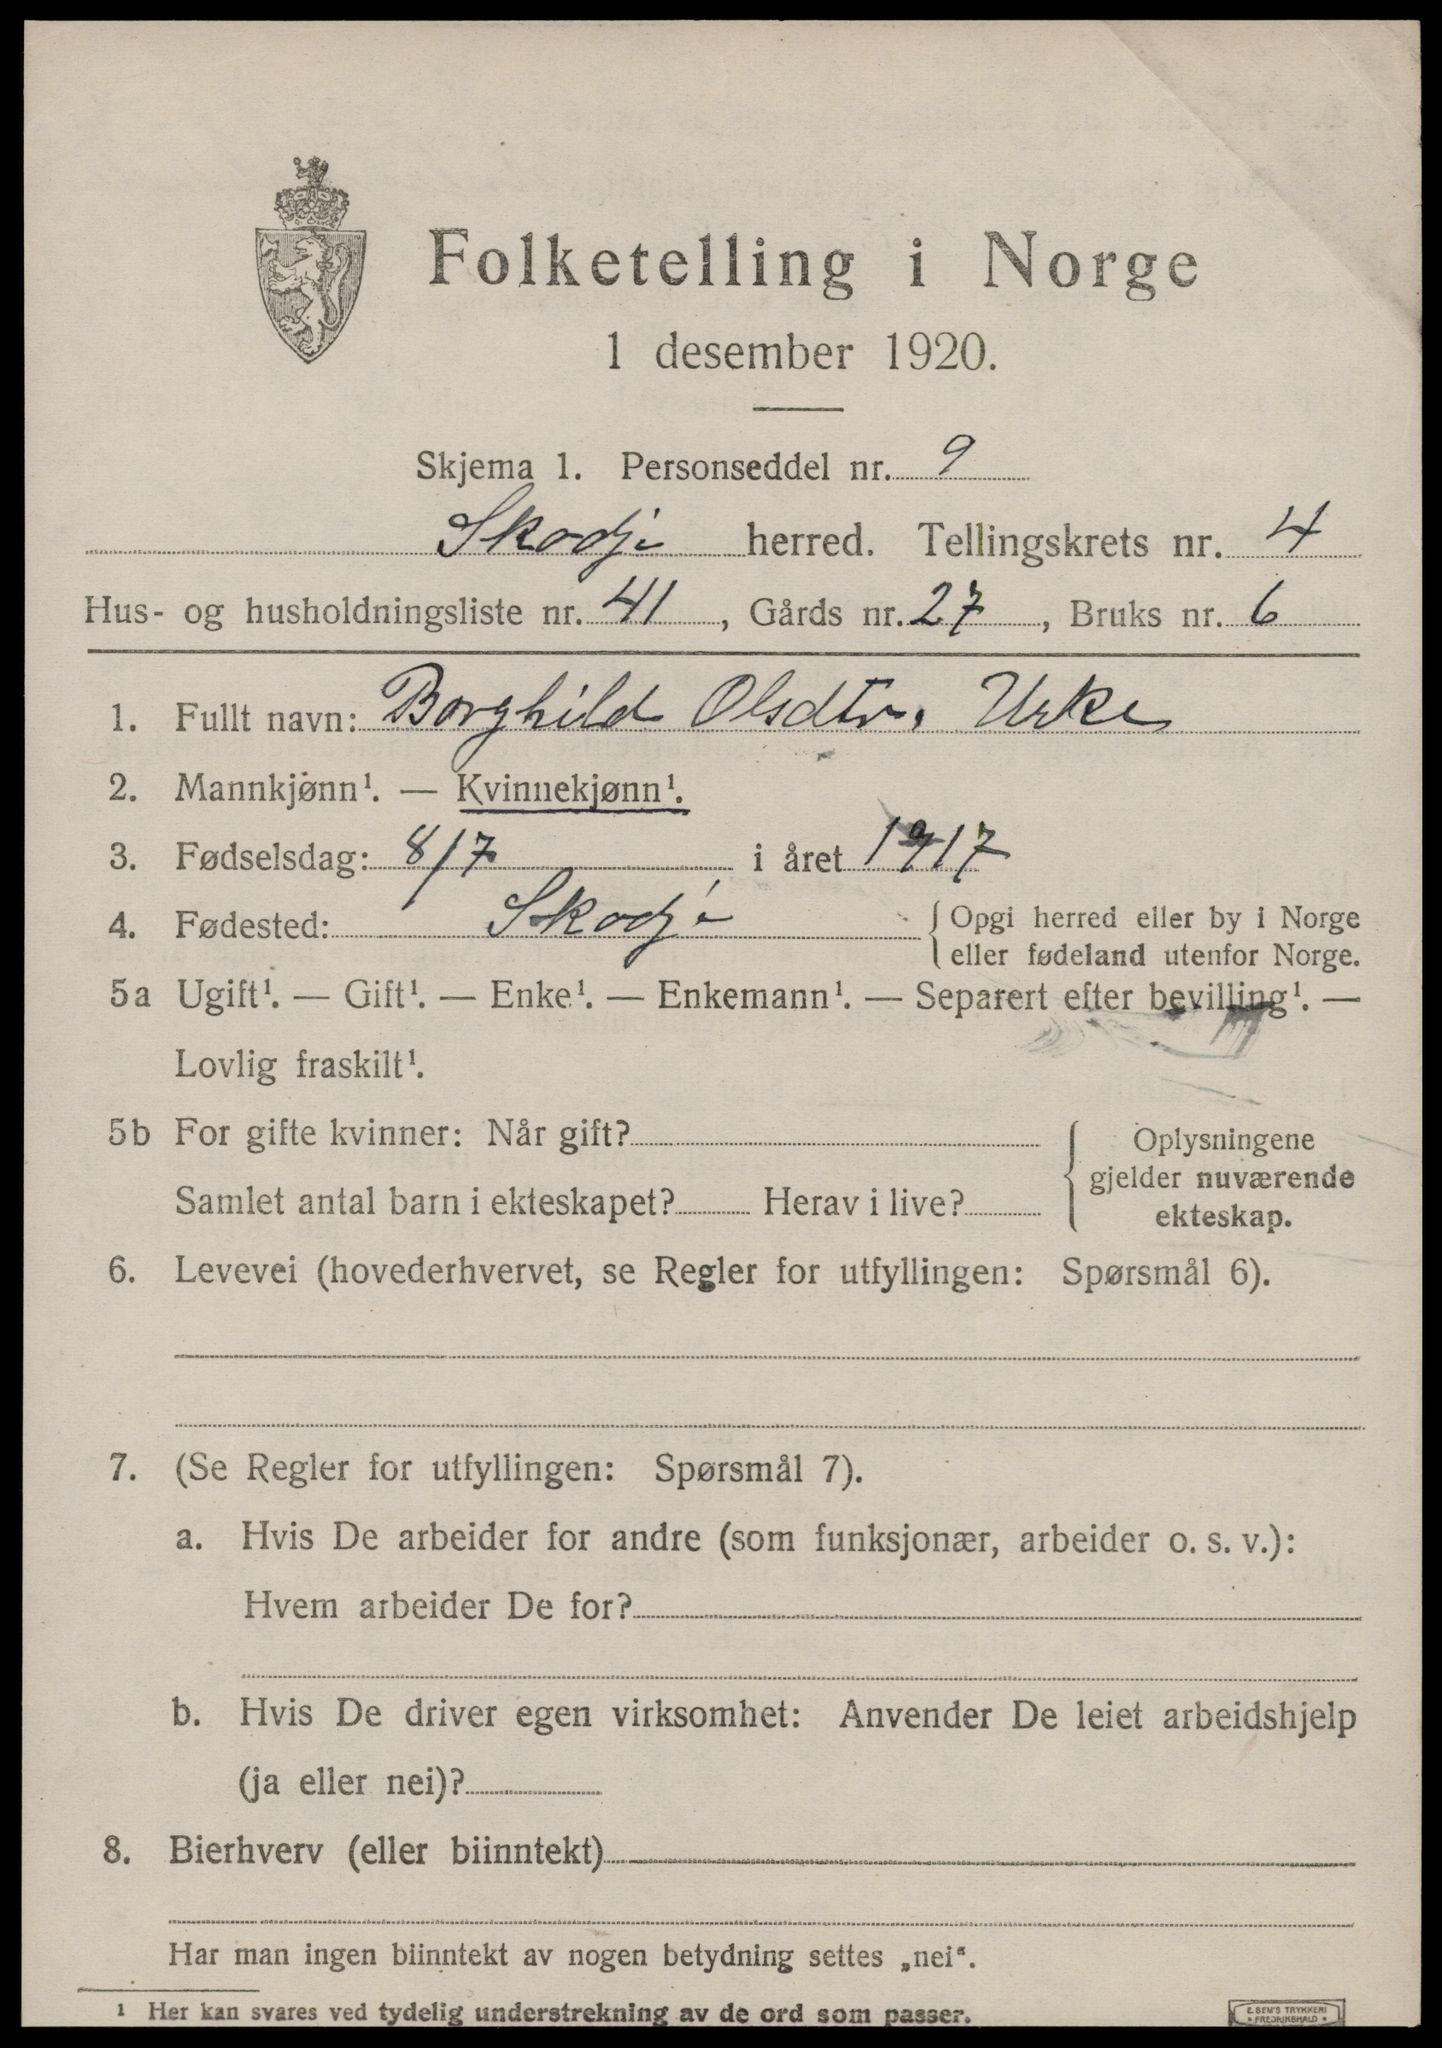 Folketelling i Norge
1 desember 1920.
Skjema 1. Personseddel nr. 9
Skodje herred. Tellingskrets nr. 4
Hus- og husholdningsliste nr. 41, Gårds nr. 27, Bruks nr. 6
1. Fullt navn: Borghild Olsdtr. Urke
2. Mannkjønn¹. — Kvinnekjønn¹.
3. Fødselsdag: 8/7 i året 1917
4. Fødested: Skodje { Opgi herred eller by i Norge
eller fødeland utenfor Norge.
5a Ugift¹. — Gift¹. — Enke¹. — Enkemann¹. — Separert efter bevilling¹. —
Lovlig fraskilt¹.
5b For gifte kvinner: Når gift? { Oplysningene
gjelder nuværende
Samlet antal barn i ekteskapet? Herav i live? ekteskap.
6. Levevei (hovederhvervet, se Regler for utfyllingen: Spørsmål 6).
7. (Se Regler for utfyllingen: Spørsmål 7).
a. Hvis De arbeider for andre (som funksjonær, arbeider o. s. v.):
Hvem arbeider De for?
b. Hvis De driver egen virksomhet: Anvender De leiet arbeidshjelp
(ja eller nei)?
8. Bierhverv (eller biinntekt)
Har man ingen biinntekt av nogen betydning settes „nei“.
¹ Her kan svares ved tydelig understrekning av de ord som passer.
E. SEM'S TRYKKERI
• FREDRIKSHALD •